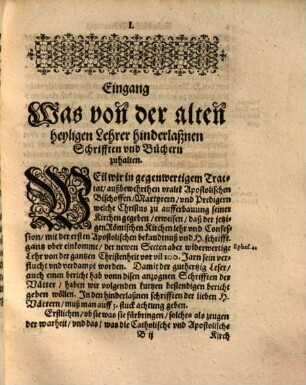 I.
Eingang
Was von der alten
heyligen Lehrer hinderlaßnen
Schrifften vnd Büchern
zuhalten.
WEil wir in gegenwertigem Trac-
tat / außbewehrthen vralte Apostolischen
Bischoffen / Martyrern / vnd Predigern
welche Christus zu aufferbauung seinen
Kirchen gegeben / erweisen / daß der jetzi-
gen Römischen Kirchen lehr vnd Confes-
sion / mit der ersten Apostolischen bekandtnuß vnd H. schrifft
gantz vber einkomme / der newen Secten aber widerwertige
Lehr von der gantzen Christenheit vor vil 100. Jarn sein ver-
flucht vnd verdampt worden. Damit der gutherzig Leser /
auch einen bericht hab von disen anzognen Schrifften der
Vätter / haben wir volgenden kurtzen bestendigen bericht
geben wöllen. In den hinderlaßnen schrifften der lieben H.
Vättern / muß man auff 3. stuck achtung geben.
Erstlichen / ob sie was sie fürbringen / solches als zeugen
der warheit / vnd das / was die Catholische vnd Apostolische
B ij
Kirch
Ephes. 4.